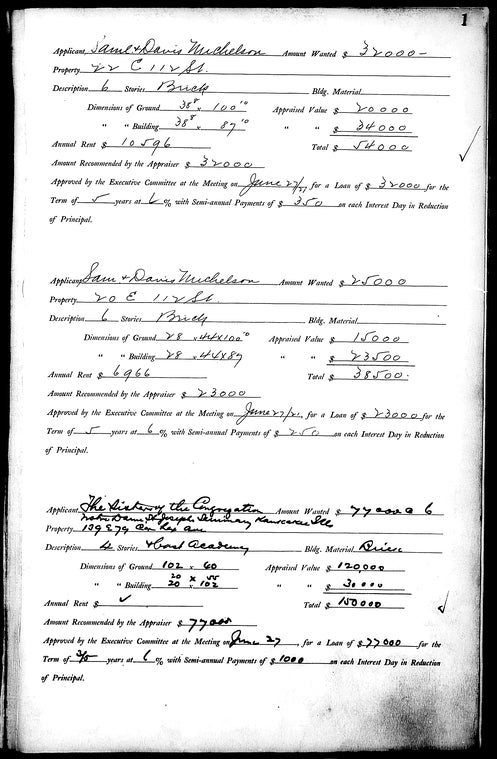 1
Applicant Saml & Davis Michelson Amount Wanted $ 32000-
Property 22 E 112 St.
Description 6 Stories Brick Bldg. Material
Dimensions of Ground 38⁸ x 100¹⁰ Appraised Value $ 20000
" " Building 38⁸ x 87¹⁰ " " $ 34000
Annual Rent $ 10596 Total $ 54000
Amount Recommended by the Appraiser $ 32000
Approved by the Executive Committee at the Meeting on June 27/21 for a Loan of $ 32000 for the
Term of 5 years at 6 % with Semi-annual Payments of $ 350 on each Interest Day in Reduction
of Principal.
Applicant Sam & Davis Michelson Amount Wanted $ 25000
Property 20 E 112 St
Description 6 Stories Brick Bldg. Material
Dimensions of Ground 28 x 44x100¹⁰ Appraised Value $ 15000
" " Building 28 x 44x87 " " $ 23500
Annual Rent $ 6966 Total $ 38500.
Amount Recommended by the Appraiser $ 23000
Approved by the Executive Committee at the Meeting on June 27/21, for a Loan of $ 23000 for the
Term of 5 years at 6 % with Semi-annual Payments of $ 250 on each Interest Day in Reduction
of Principal.
Applicant The Sisters of the Congregation Amount Wanted $ 77000 @ 6
Notre Dame St Joseph Seminary Kankakee Ill
Property 139 E 79 Cor Lex Ave
Description 4 Stories & Academy Bldg. Material Brick
Dimensions of Ground 102 x 60 Appraised Value $ 120,000
20 x 55
" " Building 20 x 102 " " $ 30000
Annual Rent $ ✓ Total $ 150000
Amount Recommended by the Appraiser $ 77000
Approved by the Executive Committee at the Meeting on June 27, for a Loan of $ 77000 for the
Term of 3/5 years at 6 % with Semi-annual Payments of $ 1000 on each Interest Day in Reduction
of Principal.